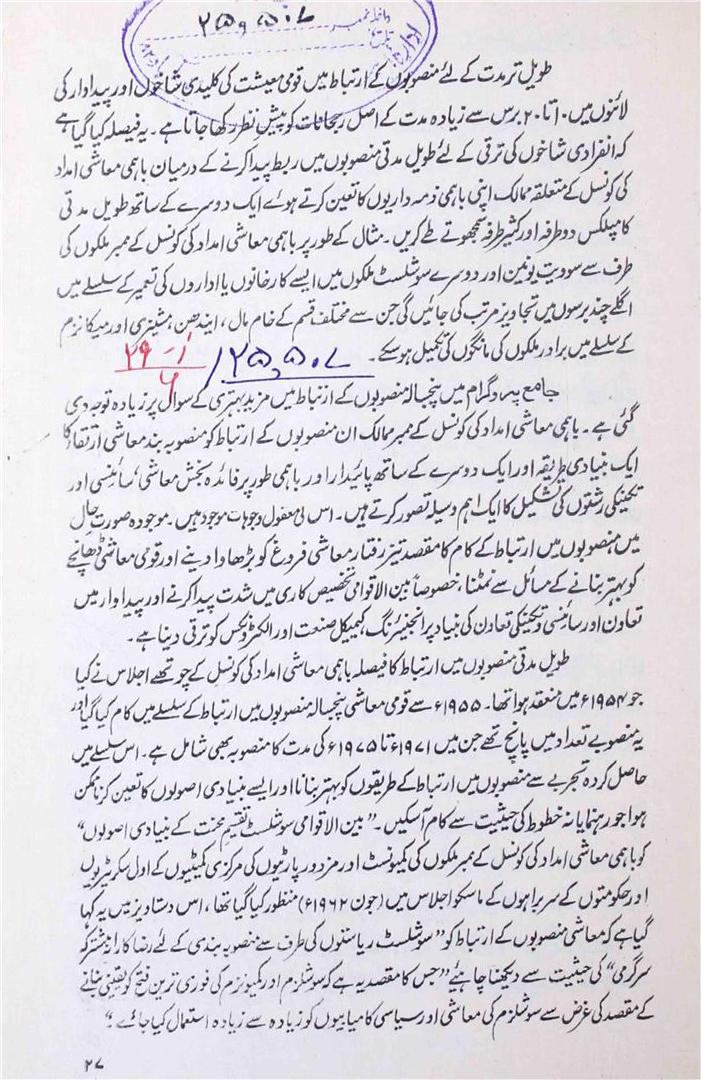 داخلہ نمبر ۲۵,۵۰۷
تاریخ
طویل تر مدت کے لئے منصوبوں کے ارتباط میں قومی معیشت کی کلیدی شاخوں اور پیداوار کی
لائنوں میں ۱۰ تا ۲۰ برس سے زیادہ مدت کے اصل رجحانات کو پیش نظر رکھا جاتا ہے۔ یہ فیصلہ کیا گیا ہے
کہ انفرادی شاخوں کی ترقی کے لئے طویل مدتی منصوبوں میں ربط پیدا کرنے کے درمیان باہمی معاشی امداد
کی کونسل کے متعلقہ ممالک اپنی باہمی ذمہ داریوں کا تعین کرتے ہوئے ایک دوسرے کے ساتھ طویل مدتی
کامپلکس دو طرفہ اور کثیر طرفہ سمجھوتے طے کریں۔ مثال کے طور پر باہمی معاشی امداد کی کونسل کے ممبر ملکوں کی
طرف سے سوویت یونین اور دوسرے سوشلسٹ ملکوں میں ایسے کارخانوں یا اداروں کی تعمیر کے سلسلے میں
اگلے چند برسوں میں تجاویز مرتب کی جائیں گی جن سے مختلف قسم کے خام مال، ایندھن، مشینری اور میکانزم
کے سلسلے میں برادر ملکوں کی مانگوں کی تکمیل ہو سکے۔ ۲۵,۵۰۷
جامع پروگرام میں پنجسالہ منصوبوں کے ارتباط میں مزید بہتری کے سوال پر زیادہ توجہ دی
گئی ہے۔ باہمی معاشی امداد کی کونسل کے ممبر ممالک ان منصوبوں کے ارتباط کو منصوبہ بند معاشی ارتقاء کا
ایک بنیادی طریقہ اور ایک دوسرے کے ساتھ پائیدار اور باہمی طور پر فائدہ بخش معاشی، سائنسی اور
تکنیکی رشتوں کی تشکیل کا ایک اہم وسیلہ تصور کرتے ہیں۔ اس کی معقول وجوہات موجود ہیں۔ موجودہ صورت حال
میں منصوبوں میں ارتباط کے کام کا مقصد تیز رفتار معاشی فروغ کو بڑھاوا دینے اور قومی معاشی ڈھانچے
کو بہتر بنانے کے مسائل سے نمٹنا، خصوصاً بین الاقوامی تخصیص کاری میں شدت پیدا کرنے اور پیداوار میں
تعاون اور سائنسی و تکنیکی تعاون کی بنیاد پر انجنیئرنگ، کیمیکل صنعت اور الکٹرونکس کو ترقی دینا ہے۔
طویل مدتی منصوبوں میں ارتباط کا فیصلہ باہمی معاشی امداد کی کونسل کے چوتھے اجلاس نے کیا
جو ۱۹۵۴ء میں منعقد ہوا تھا۔ ۱۹۵۵ء سے قومی معاشی پنجسالہ منصوبوں میں ارتباط کے سلسلے میں کام کیا گیا اور
یہ منصوبے تعداد میں پانچ تھے جن میں ۱۹۷۱ء تا ۱۹۷۵ء کی مدت کا منصوبہ بھی شامل ہے۔ اس سلسلے میں
حاصل کردہ تجربے سے منصوبوں میں ارتباط کے طریقوں کو بہتر بنانا اور ایسے بنیادی اصولوں کا تعین کرنا ممکن
ہوا جو رہنمایانہ خطوط کی حیثیت سے کام آ سکیں۔ "بین الاقوامی سوشلسٹ تقسیم محنت کے بنیادی اصولوں"
کو باہمی معاشی امداد کی کونسل کے ممبر ملکوں کی کمیونسٹ اور مزدور پارٹیوں کی مرکزی کمیٹیوں کے اول سکریٹریوں
اور حکومتوں کے سربراہوں کے ماسکو اجلاس میں (جون ۱۹۶۲ء) منظور کیا گیا تھا، اس دستاویز میں یہ کہا
گیا ہے کہ معاشی منصوبوں کے ارتباط کو "سوشلسٹ ریاستوں کی طرف سے منصوبہ بندی کے لئے رضاکارانہ مشترکہ
سرگرمی" کی حیثیت سے دیکھنا چاہئے "جس کا مقصد یہ ہے کہ سوشلزم اور کمیونزم کی فوری ترین فتح کو یقینی بنانے
کے مقصد کی غرض سے سوشلزم کی معاشی اور سیاسی کامیابیوں کو زیادہ سے زیادہ استعمال کیا جائے۔"
۲۷